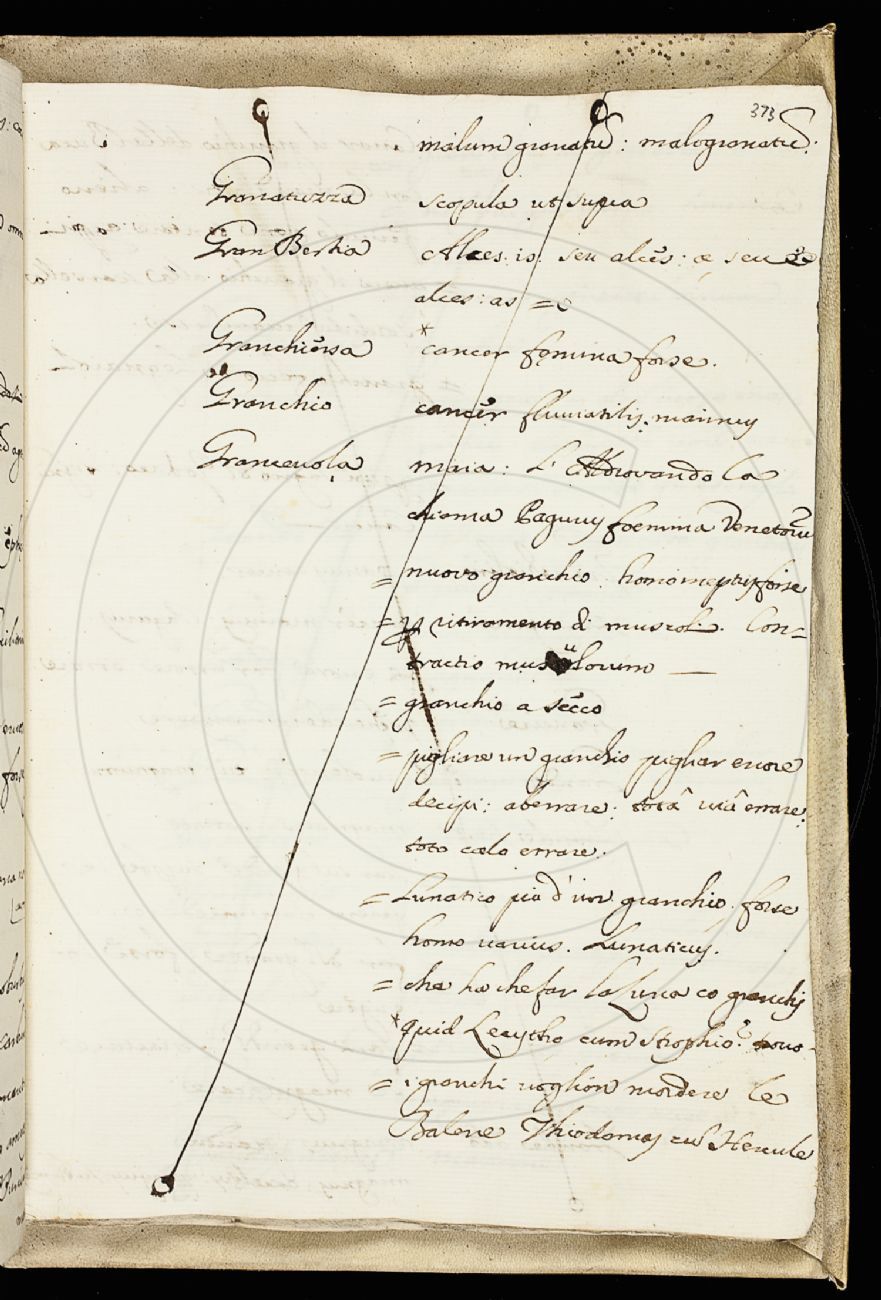 373
malum granatũ: malogranatũ.
Granatuzza scopula ut supra
Gran Bestia Alces. is. seu alcẽs: æ seu
alces: as =
Granchiessa * cancer fęmina forse.
Granchio cancer fluviatilis. marinus
Grancevola maia: L'Aldrovando la
chiama Pagurus foemina Venetorũ
= nuovo granchio. homo ineptus forse
= ritiramento di muscoli. Con=
tractio musculorum —
= granchio a secco
= pigliare un granchio pigliar errore
decipi: aberrare: totâ viâ errare:
toto cælo errare.
= Lunatico più d'un granchio. forse
homo varius. Lunaticus.
= che ha che far la Luna co granchi
* quid Lecytho cum Strophio?
= i granchi voglion mordere le
Balene Thiodamas cũ Hercule